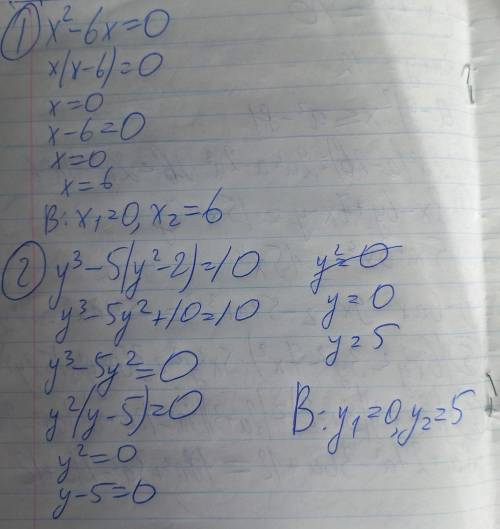 ① x²-6x=0
x(x-6)=0
x=0
x-6=0
x=0
x=6
В: x₁=0, x₂=6
② y³-5(y²-2)=10
y³-5y²+10=10
y³-5y²=0
y²(y-5)=0
y²=0
y-5=0
y²=0
y=0
y=5
В: y₁=0, y₂=5